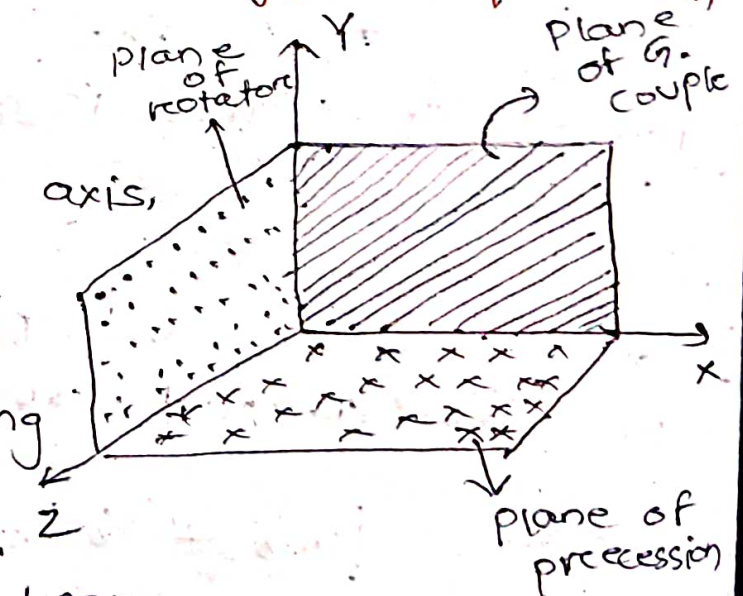 Y
plane
of
reotatore
plane
of G.
couple
axis,
X
ng
Z
plane of
preecession